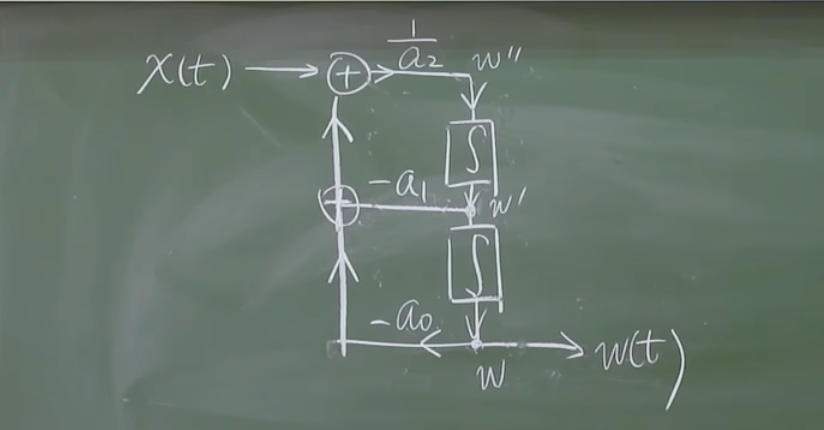 x(t)
+
1/a₂
w''
∫
-a₁
w'
+
∫
-a₀
w
w(t)